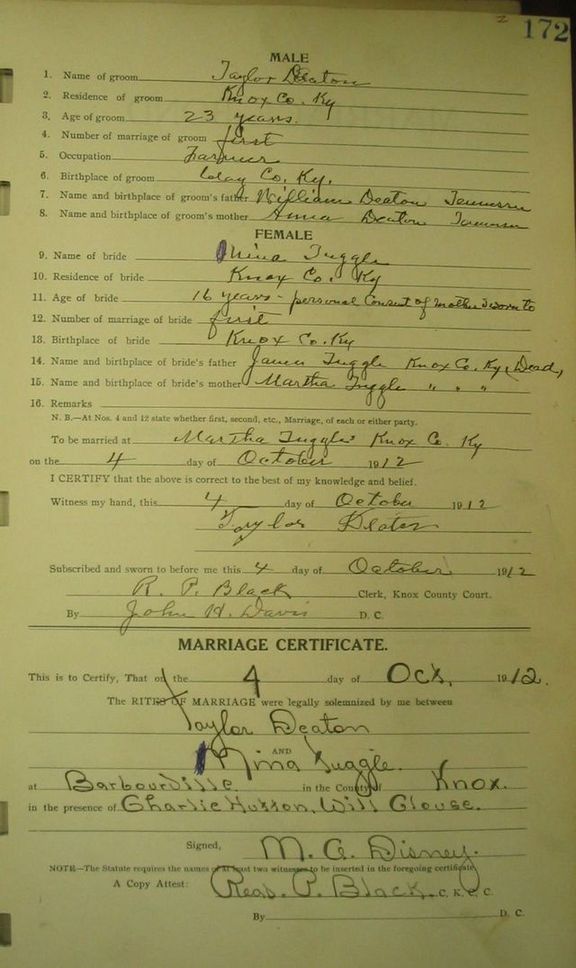 172
MALE
1. Name of groom Taylor Deaton
2. Residence of groom Knox Co. Ky
3. Age of groom 23 years.
4. Number of marriage of groom first
5. Occupation Farmer
6. Birthplace of groom Clay Co. Ky.
7. Name and birthplace of groom's father William Deaton
8. Name and birthplace of groom's mother Anna Deaton
FEMALE
9. Name of bride Mina Tuggle
10. Residence of bride Knox Co. Ky
11. Age of bride 16 years - personal consent of mother sworn to
12. Number of marriage of bride first
13. Birthplace of bride Knox Co. Ky
14. Name and birthplace of bride's father James Tuggle Knox Co. Ky (Dead)
15. Name and birthplace of bride's mother Martha Tuggle " " "
16. Remarks
N. B.—At Nos. 4 and 12 state whether first, second, etc., Marriage, of each or either party.
To be married at Martha Tuggle's Knox Co. Ky
on the 4 day of October 1912
I CERTIFY that the above is correct to the best of my knowledge and belief.
Witness my hand, this 4 day of October 1912
Taylor
Subscribed and sworn to before me this 4 day of October 1912
R. P. Black Clerk, Knox County Court.
By John H. Davis D. C.
MARRIAGE CERTIFICATE.
This is to Certify, That on the 4 day of Oct. 1912.
The RITES OF MARRIAGE were legally solemnized by me between
Taylor Deaton
AND
Mina Tuggle.
at Barbourville. in the County of Knox.
in the presence of Charlie Hutson, Will Clouse.
Signed, M. C. Disney.
NOTE—The Statute requires the names of at least two witnesses to be inserted in the foregoing certificate.
A Copy Attest: Read. P. Black C. K. C. C.
By D. C.